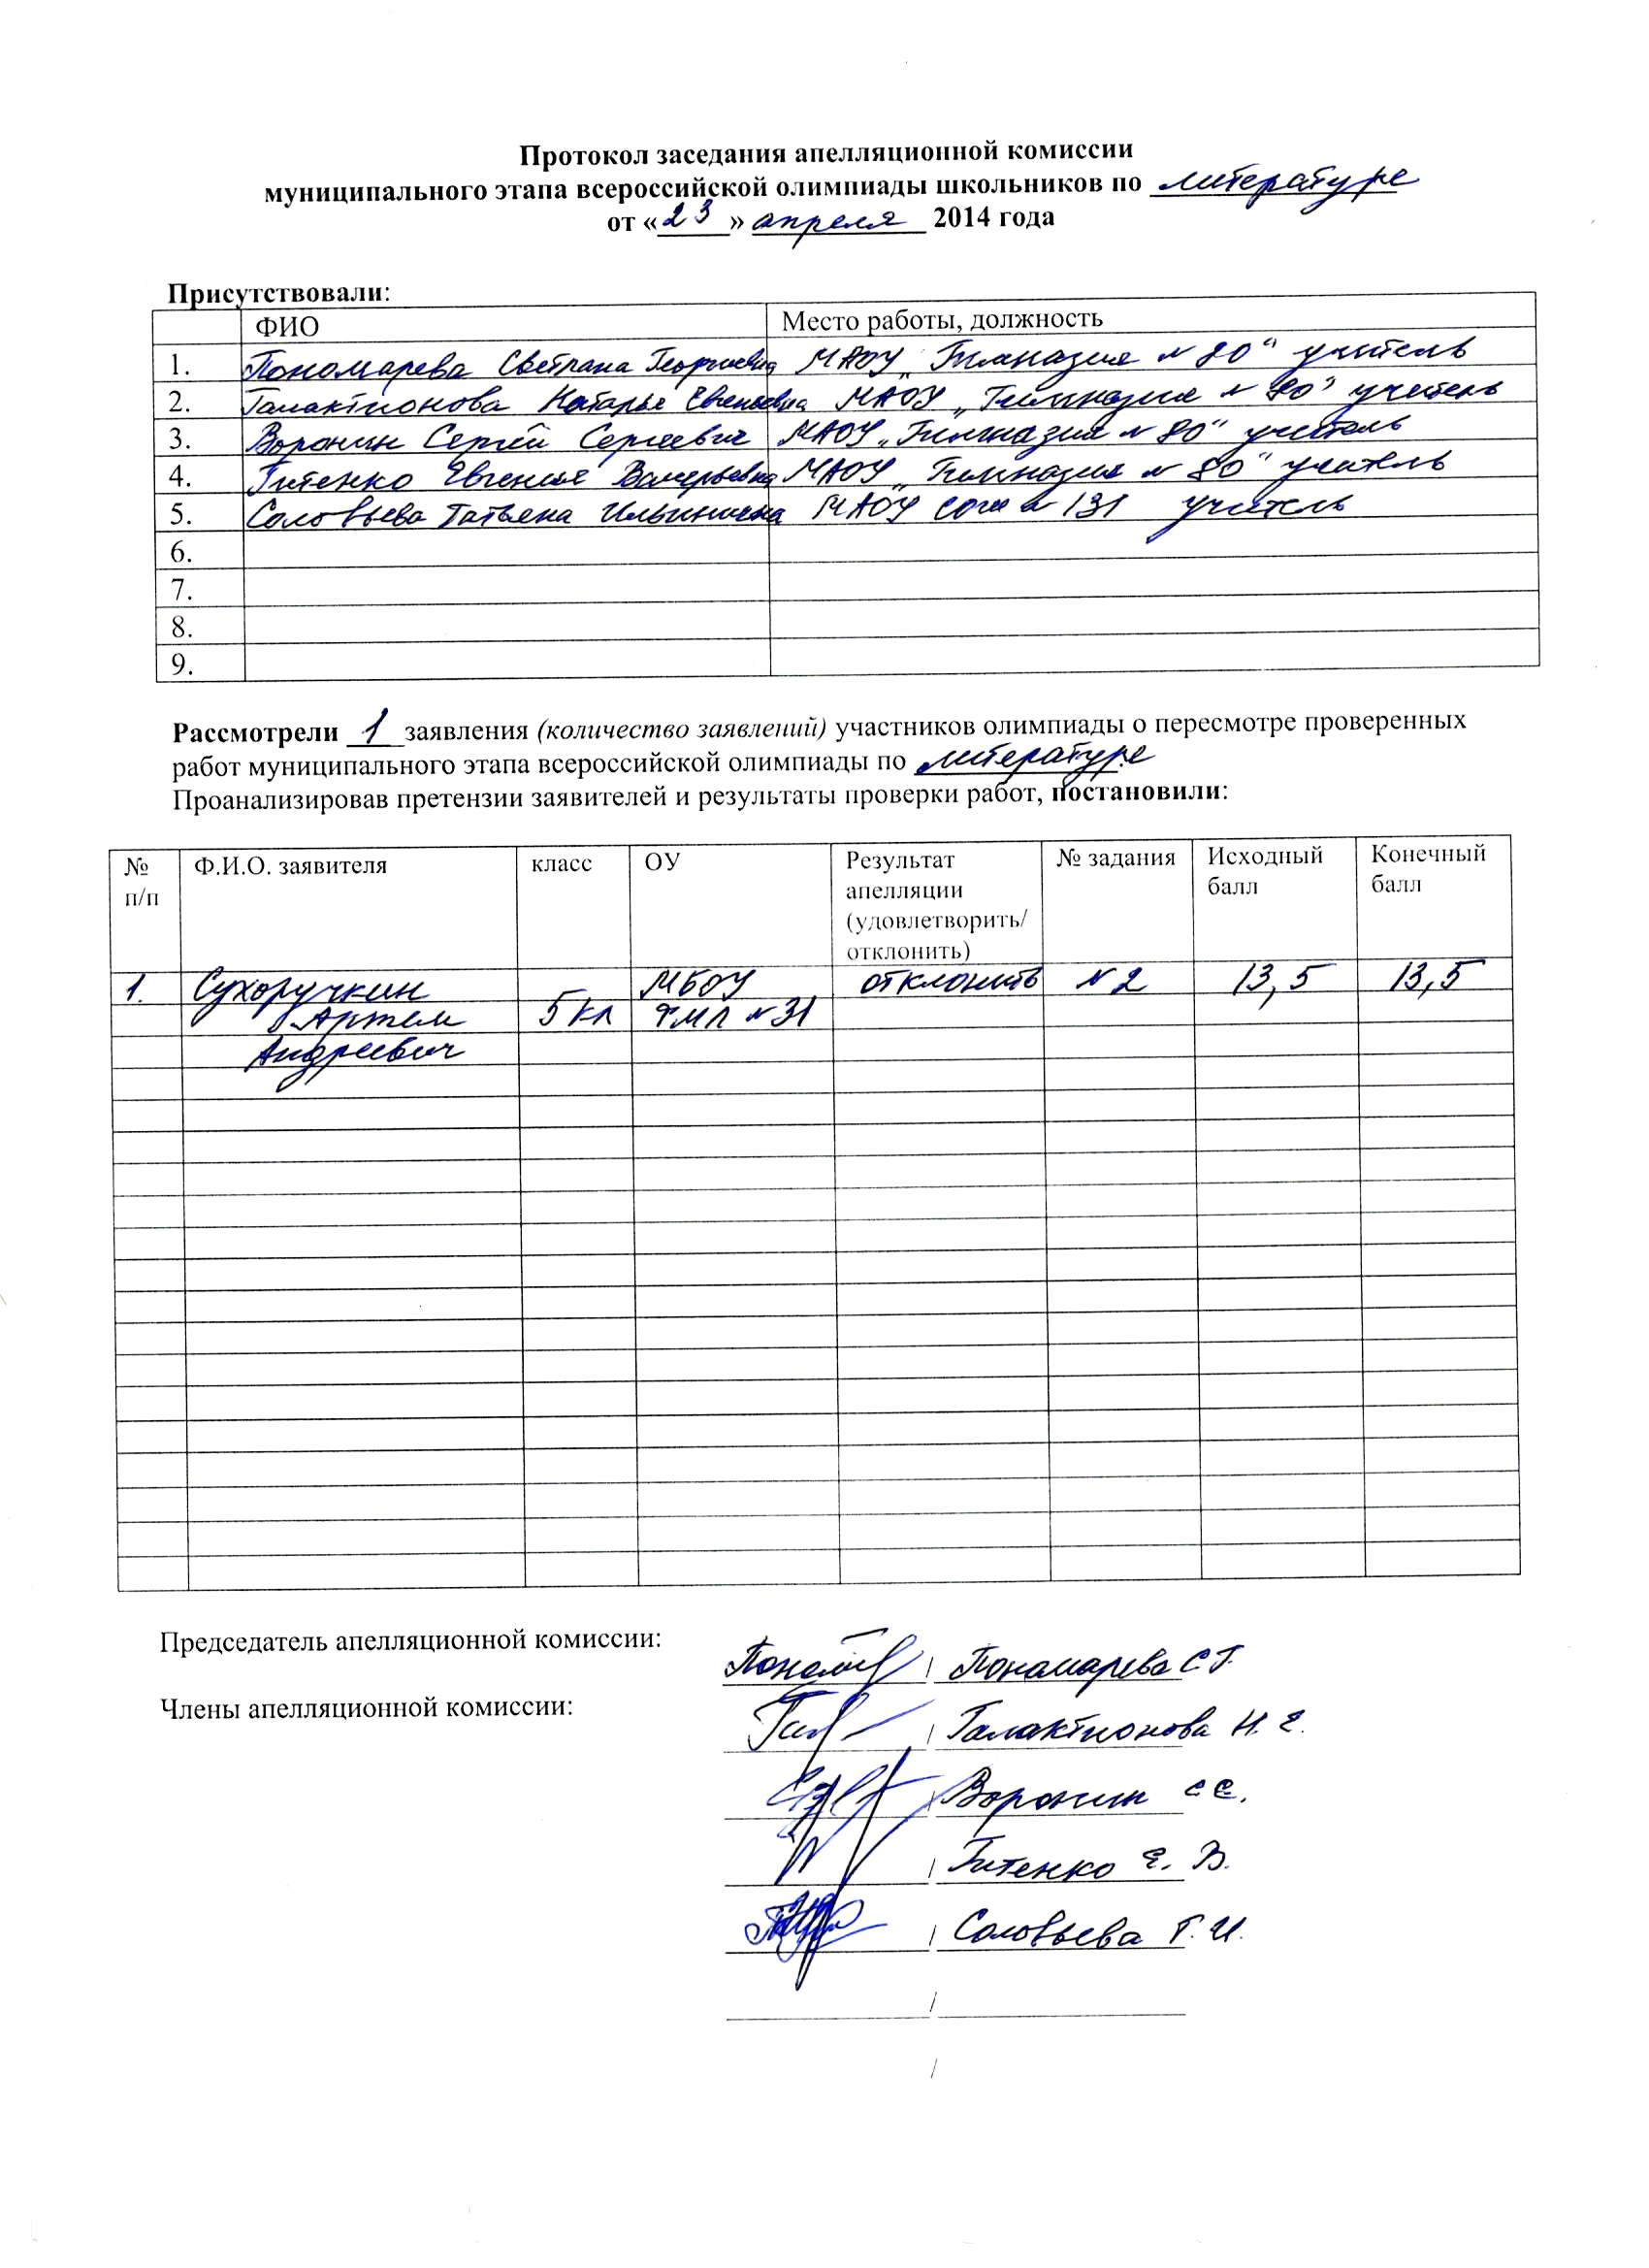 Протокол заседания апелляционной комиссии
муниципального этапа всероссийской олимпиады школьников по литературе
от «23» апреля 2014 года
Присутствовали:
ФИО Место работы, должность
1. Пономарева Светлана Георгиевна МАОУ „Гимназия № 80“ учитель
2. Галактионова Наталья Евгеньевна МАОУ „Гимназия № 80“ учитель
3. Воронин Сергей Сергеевич МАОУ „Гимназия № 80“ учитель
4. Гитенко Евгения Валерьевна МАОУ „Гимназия № 80“ учитель
5. Соловьева Татьяна Ильинична МАОУ сош № 131 учитель
6.
7.
8.
9.
Рассмотрели 1 заявления (количество заявлений) участников олимпиады о пересмотре проверенных
работ муниципального этапа всероссийской олимпиады по литературе
Проанализировав претензии заявителей и результаты проверки работ, постановили:
№ Ф.И.О. заявителя класс ОУ Результат № задания Исходный Конечный
п/п апелляции балл балл
(удовлетворить/
отклонить)
1. Сухоручкин МБОУ отклонить №2 13,5 13,5
Артем 5 кл ФМЛ №31
Андреевич
Председатель апелляционной комиссии:
/ Пономарева С.Г.
Члены апелляционной комиссии:
/ Галактионова Н. Е.
/ Воронин С С.
/ Гитенко Е. В.
/ Соловьева Т. И.
/
/